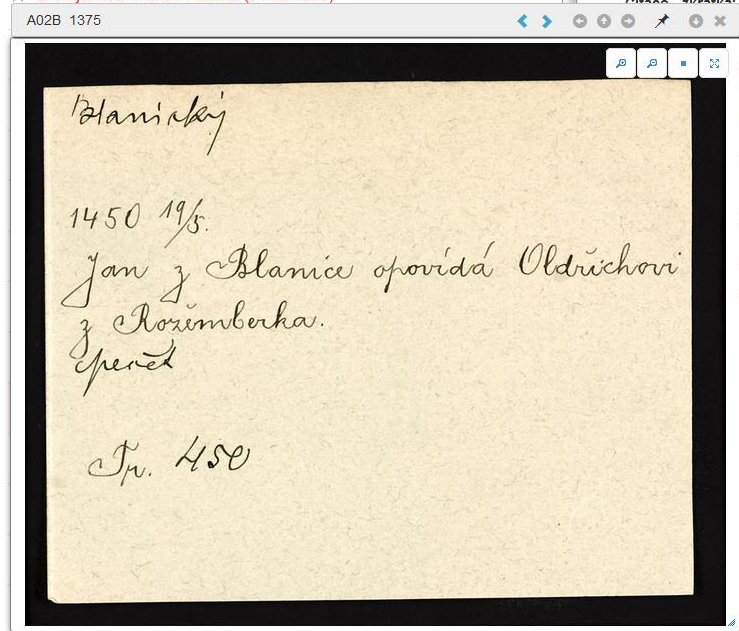 A02B 1375
Blanický
1450 19/5.
Jan z Blanice opovídá Oldřichovi
z Rožemberka.
pečeť
Tr. 450